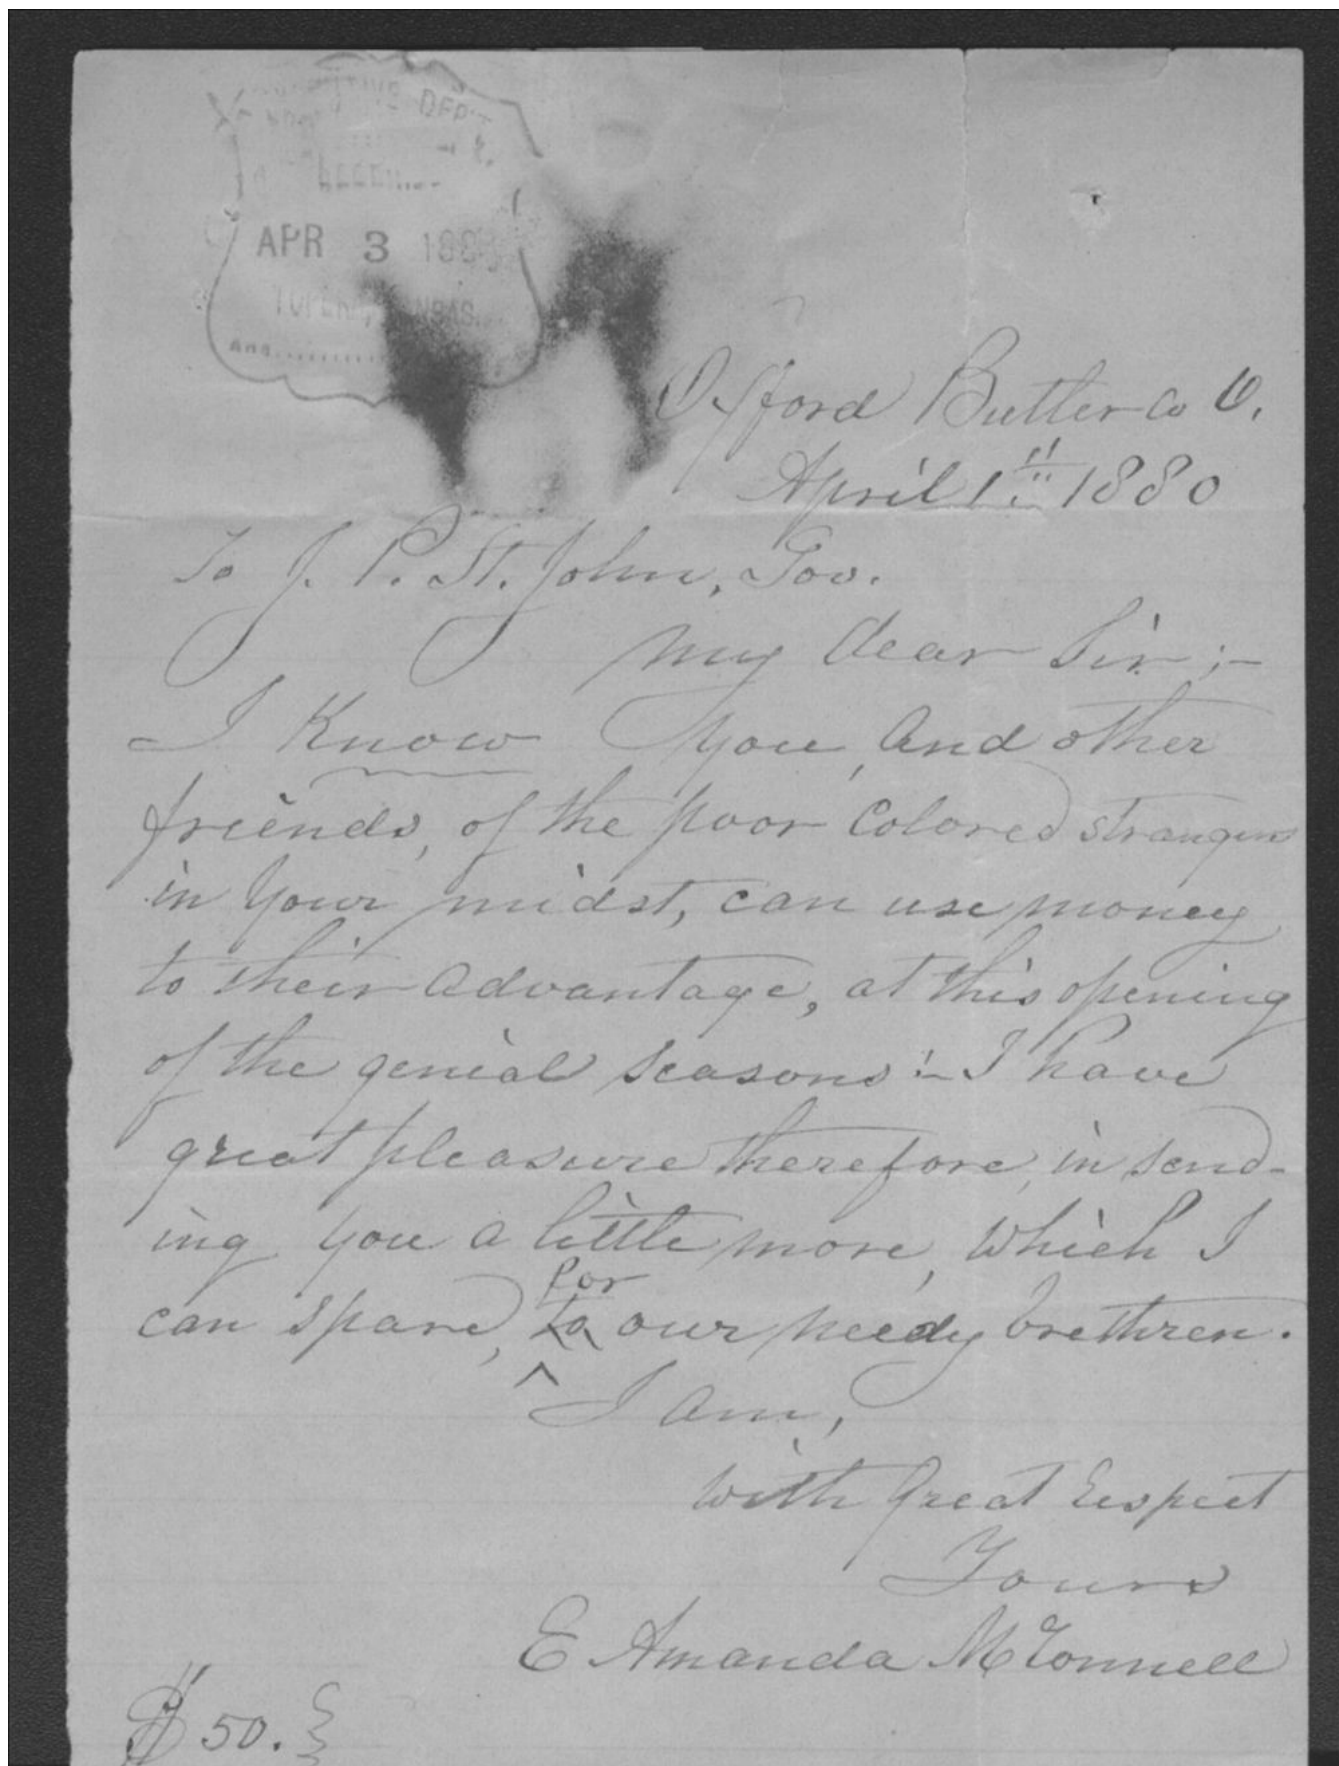 DEPT
APR 3 188
Oxford Butler Co O.
April 1st 1880
To J. P. St. John, Gov.
My dear Sir;-
I Know you, and other
friends, of the poor Colored strangers
in your midst, can use money
to their advantage, at this opening
of the genial seasons:- I have
great pleasure therefore, in send-
ing you a little more, which I
for
can spare, to our needy brethren.
^ I am,
with great respect
Yours
E Amanda McConnell
$50.}